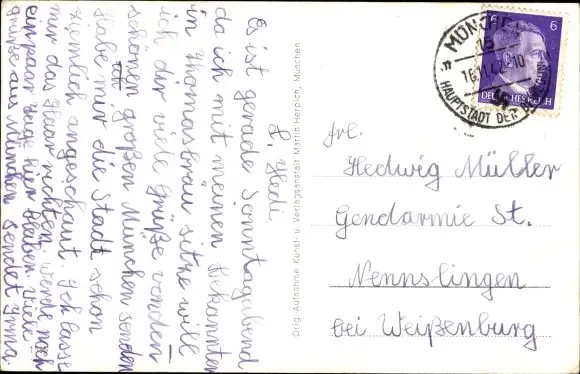 L. Hedi
Es ist gerade Sonntagabend
da ich mit meinen Bekannten
in Thomasbräu sitze will
ich dir viele Grüße von den
schönen großen München senden
Habe mir die Stadt schon
ziemlich angeschaut. Ich lasse
mir das Haar richten, werde noch
ein paar Tage hier bleiben. Viele
Grüße aus München sendet Irma
Orig.-Aufnahme Kunst- u. Verlagsanstalt Martin Herpich, München
MÜNCHEN
HAUPTSTADT DER
6 6
DEUTSCHES REICH
Frl.
Hedwig Müller
Gendarmie St.
Nennslingen
bei Weißenburg